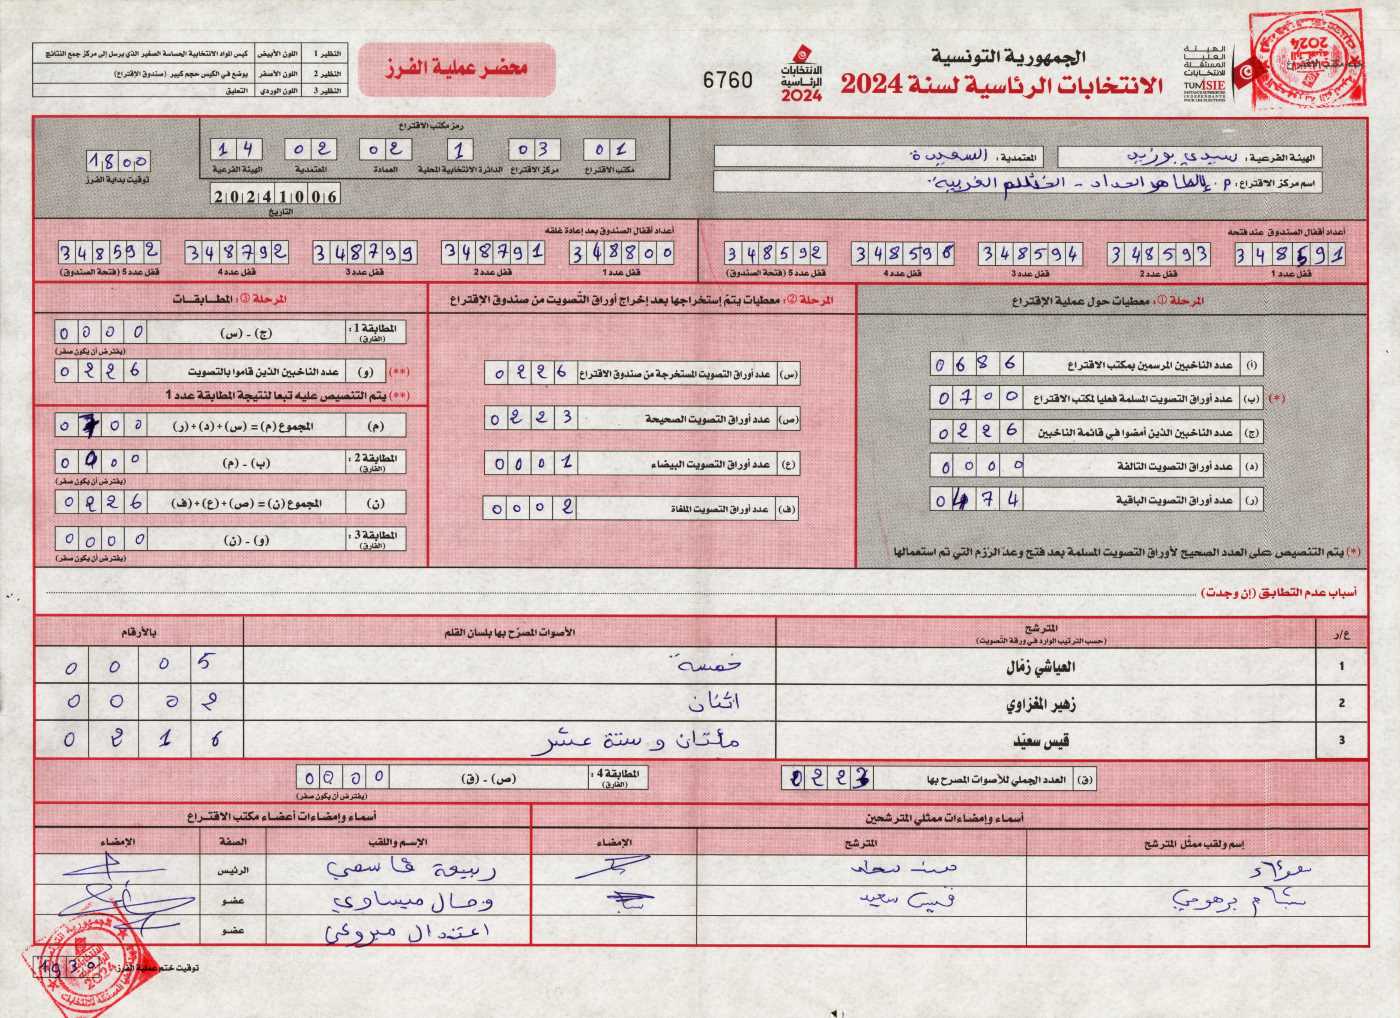 الجمهورية التونسية
الانتخابات الرئاسية لسنة 2024
الهيئة العليا المستقلة للانتخابات
TUNISIE
الانتخابات الرئاسية 2024
6760
محضر عملية الفرز
النظير 1 اللون الأبيض كيس المواد الانتخابية الحساسة الصغير الذي يرسل إلى مركز جمع النتائج
النظير 2 اللون الأصفر يوضع في الكيس حجم كبير (صندوق الإقتراع)
النظير 3 اللون الوردي التعليق
الهيئة الفرعية : سيدي بوزيد
المعتمدية : السعيدة
اسم مركز الاقتراع : م. إ الطاهر الحداد - الغربية
رمز مكتب الاقتراع
01 03 1 02 02 14
مكتب الاقتراع مركز الاقتراع الدائرة الانتخابية المحلية العمادة المعتمدية الهيئة الفرعية
20241006
التاريخ
1800
توقيت بداية الفرز
أعداد أقفال الصندوق عند فتحه
348591 348593 348594 348598 348592
قفل عدد 1 قفل عدد 2 قفل عدد 3 قفل عدد 4 قفل عدد 5 (فتحة الصندوق)
أعداد أقفال الصندوق بعد إعادة غلقه
348800 348791 348799 348792 348592
قفل عدد 1 قفل عدد 2 قفل عدد 3 قفل عدد 4 قفل عدد 5 (فتحة الصندوق)
المرحلة ①: معطيات حول عملية الإقتراع
(أ) عدد الناخبين المرسمين بمكتب الاقتراع 0686
(*) (ب) عدد أوراق التصويت المسلمة فعليا لمكتب الاقتراع 0700
(ج) عدد الناخبين الذين أمضوا في قائمة الناخبين 0226
(د) عدد أوراق التصويت التالفة 0000
(ر) عدد أوراق التصويت الباقية 0474
(*) يتم التنصيص على العدد الصحيح لأوراق التصويت المسلمة بعد فتح وعد الرزم التي تم استعمالها
المرحلة ②: معطيات يتم إستخراجها بعد إخراج أوراق التصويت من صندوق الإقتراع
(س) عدد أوراق التصويت المستخرجة من صندوق الاقتراع 0226
(ص) عدد أوراق التصويت الصحيحة 0223
(ع) عدد أوراق التصويت البيضاء 0001
(ف) عدد أوراق التصويت الملغاة 0002
المرحلة ③: المطابقات
المطابقة 1 : (الفارق) (ج) - (س) 0000
(يفترض أن يكون صفر)
(**) (و) عدد الناخبين الذين قاموا بالتصويت 0226
(**) يتم التنصيص عليه تبعا لنتيجة المطابقة عدد 1
(م) المجموع (م) = (س)+(د)+(ر) 0700
المطابقة 2 : (الفارق) (ب) - (م) 0000
(يفترض أن يكون صفر)
(ن) المجموع (ن) = (ص)+(ع)+(ف) 0226
المطابقة 3 : (الفارق) (و) - (ن) 0000
(يفترض أن يكون صفر)
أسباب عدم التطابق (إن وجدت)
ع/ر المترشح (حسب الترتيب الوارد في ورقة التصويت) الأصوات المصرّح بها بلسان القلم بالأرقام
1 العياشي زمّال خمسة 0005
2 زهير المغزاوي اثنان 0002
3 قيس سعيّد مائتان و ستة عشر 0216
(ق) العدد الجملي للأصوات المصرح بها 0223
المطابقة 4 : (الفارق) (ص) - (ق) 0000
(يفترض أن يكون صفر)
أسماء وإمضاءات ممثلي المترشحين
إسم ولقب ممثّل المترشح المترشح الإمضاء
قيس سعيد
برهومي قيس سعيد
أسماء وإمضاءات أعضاء مكتب الاقتراع
الإسم واللقب الصفة الإمضاء
ربيعة قاسمي الرئيس
وصال ميساوي عضو
اعتدال مبروكي عضو
توقيت ختم عملية الفرز 1930